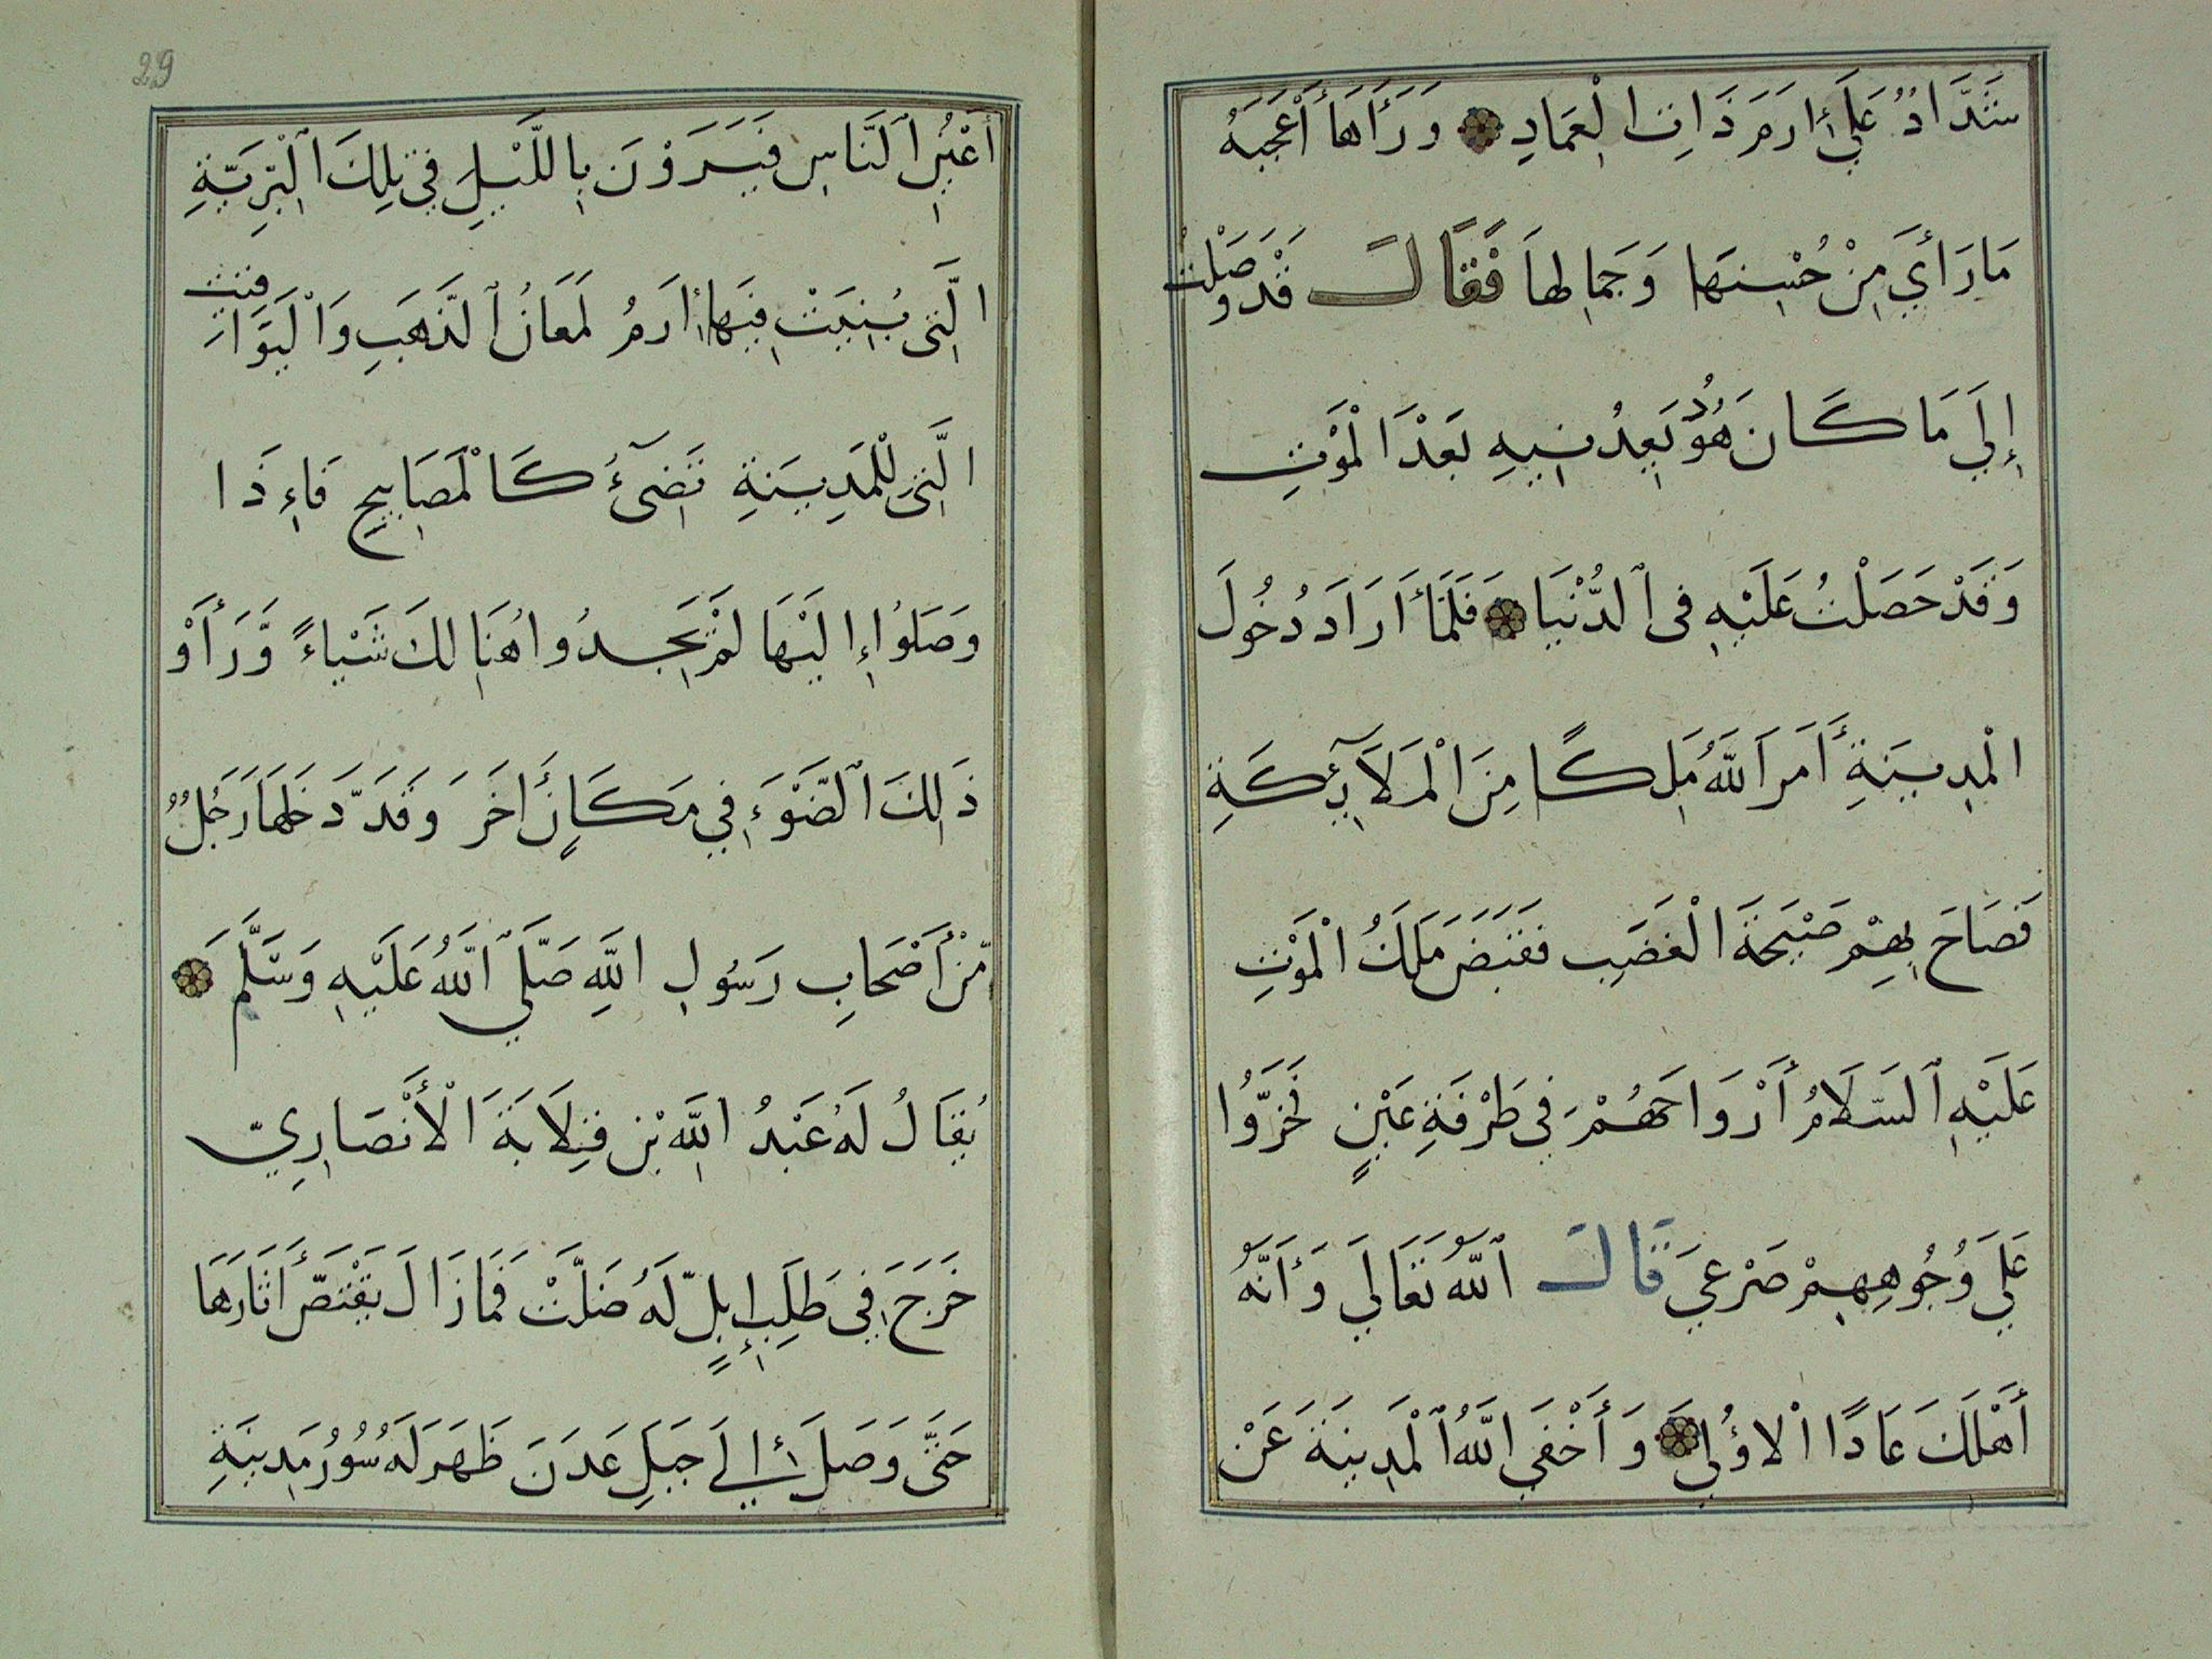 شَدَّادٌ عَلَىٰ إِرَمَ ذَاتِ الْعِمَادِ وَرَأَىٰهَا أَعْجَبَهُ
مَا رَأَىٰ مِنْ حُسْنِهَا وَجَمَالِهَا فَقَالَ قَدْ وَصَلْتُ
إِلَىٰ مَا كَانَ هُودٌ يَعِدُنِيهِ بَعْدَ الْمَوْتِ
وَقَدْ حَصَلْتُ عَلَيْهِ فِى الدُّنْيَا فَلَمَّا أَرَادَ دُخُولَ
الْمَدِينَةِ أَمَرَ اللَّهُ مَلَكًا مِنَ الْمَلَآئِكَةِ
فَصَاحَ بِهِمْ صَيْحَةَ الْغَضَبِ فَقَبَضَ مَلَكُ الْمَوْتِ
عَلَيْهِ السَّلَامُ أَرْوَاحَهُمْ فِي طَرْفَةِ عَيْنٍ فَخَرُّوا
عَلَىٰ وُجُوهِهِمْ صَرْعَىٰ قَالَ اللَّهُ تَعَالَىٰ وَأَنَّهُ
أَهْلَكَ عَادًا الْأُولَىٰ وَأَخْفَى اللَّهُ الْمَدِينَةَ عَنْ
29
أَعْيُنِ النَّاسِ فَيَرَوْنَ بِاللَّيْلِ فِي تِلْكَ الْبَرِّيَّةِ
الَّتِى بُنِيَتْ فِيهَا إِرَمُ لَمَعَانُ الذَّهَبِ وَالْيَوَاقِيتِ
الَّتِى لِلْمَدِينَةِ تَضِىٓءُ كَالْمَصَابِيحِ فَإِذَا
وَصَلُوا إِلَيْهَا لَمْ يَجِدُوا هُنَالِكَ شَيْاءً وَّرَأَوْا
ذَلِكَ الضَّوْءَ فِي مَكَانٍ أَخَرَ وَقَدْ دَخَلَهَا رَجُلٌ
مِّنْ أَصْحَابِ رَسُولِ اللَّهِ صَلَّى اللَّهُ عَلَيْهِ وَسَلَّمَ
يُقَالُ لَهُ عَبْدُ اللَّهِ بْنِ قِلَابَةَ الْأَنْصَارِيّ
خَرَجَ فِي طَلَبِ إِبِلٍ لَّهُ ضَلَّتْ فَمَا زَالَ يَقْتَصُّ أَثَارَهَا
حَتَّىٰ وَصَلَ إِلَىٰ جَبَلِ عَدَنَ ظَهَرَ لَهُ سُورُ مَدِينَةٍ